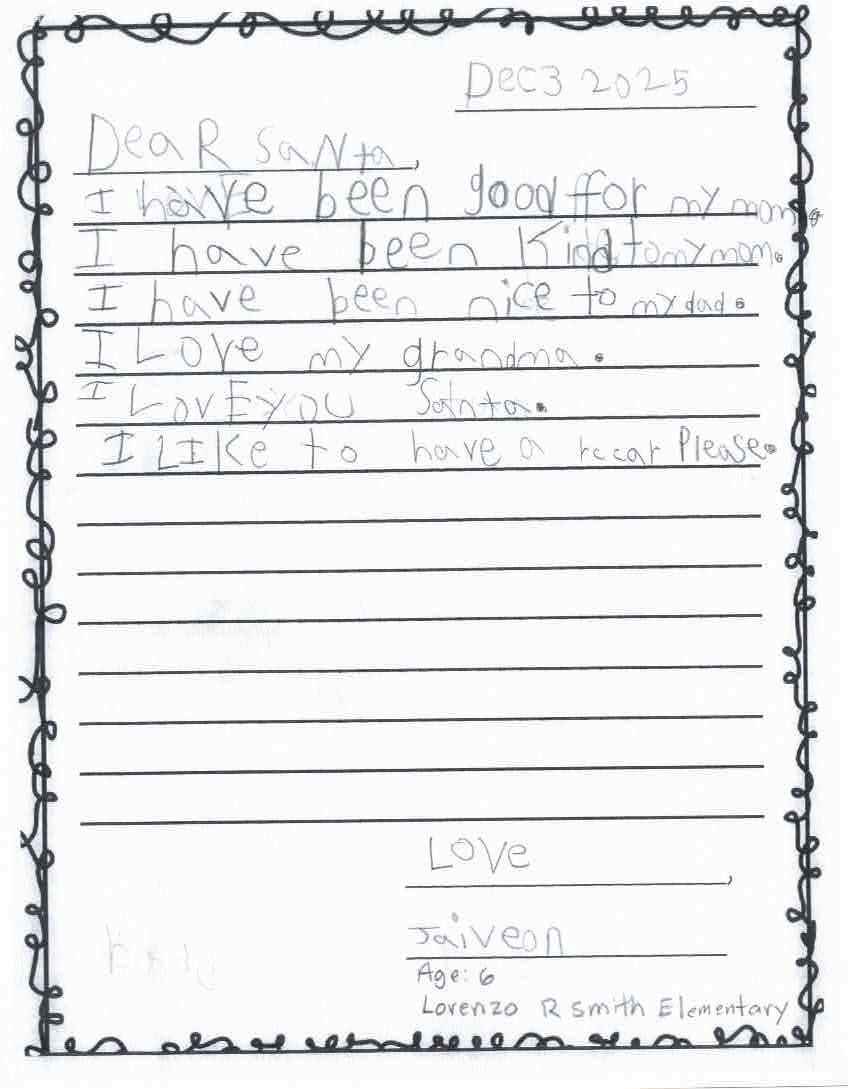 Dec 3 2025
DeaR SaNta,
I haVE been good ffor my mom.
I have been Kind to my mom.
I have been nice to my dad.
I LOVe my grandma.
I LovEyou Santa.
I LIKe to have a rccar Please.
LOVe,
Jaiveon
Age: 6
Lorenzo R Smith Elementary